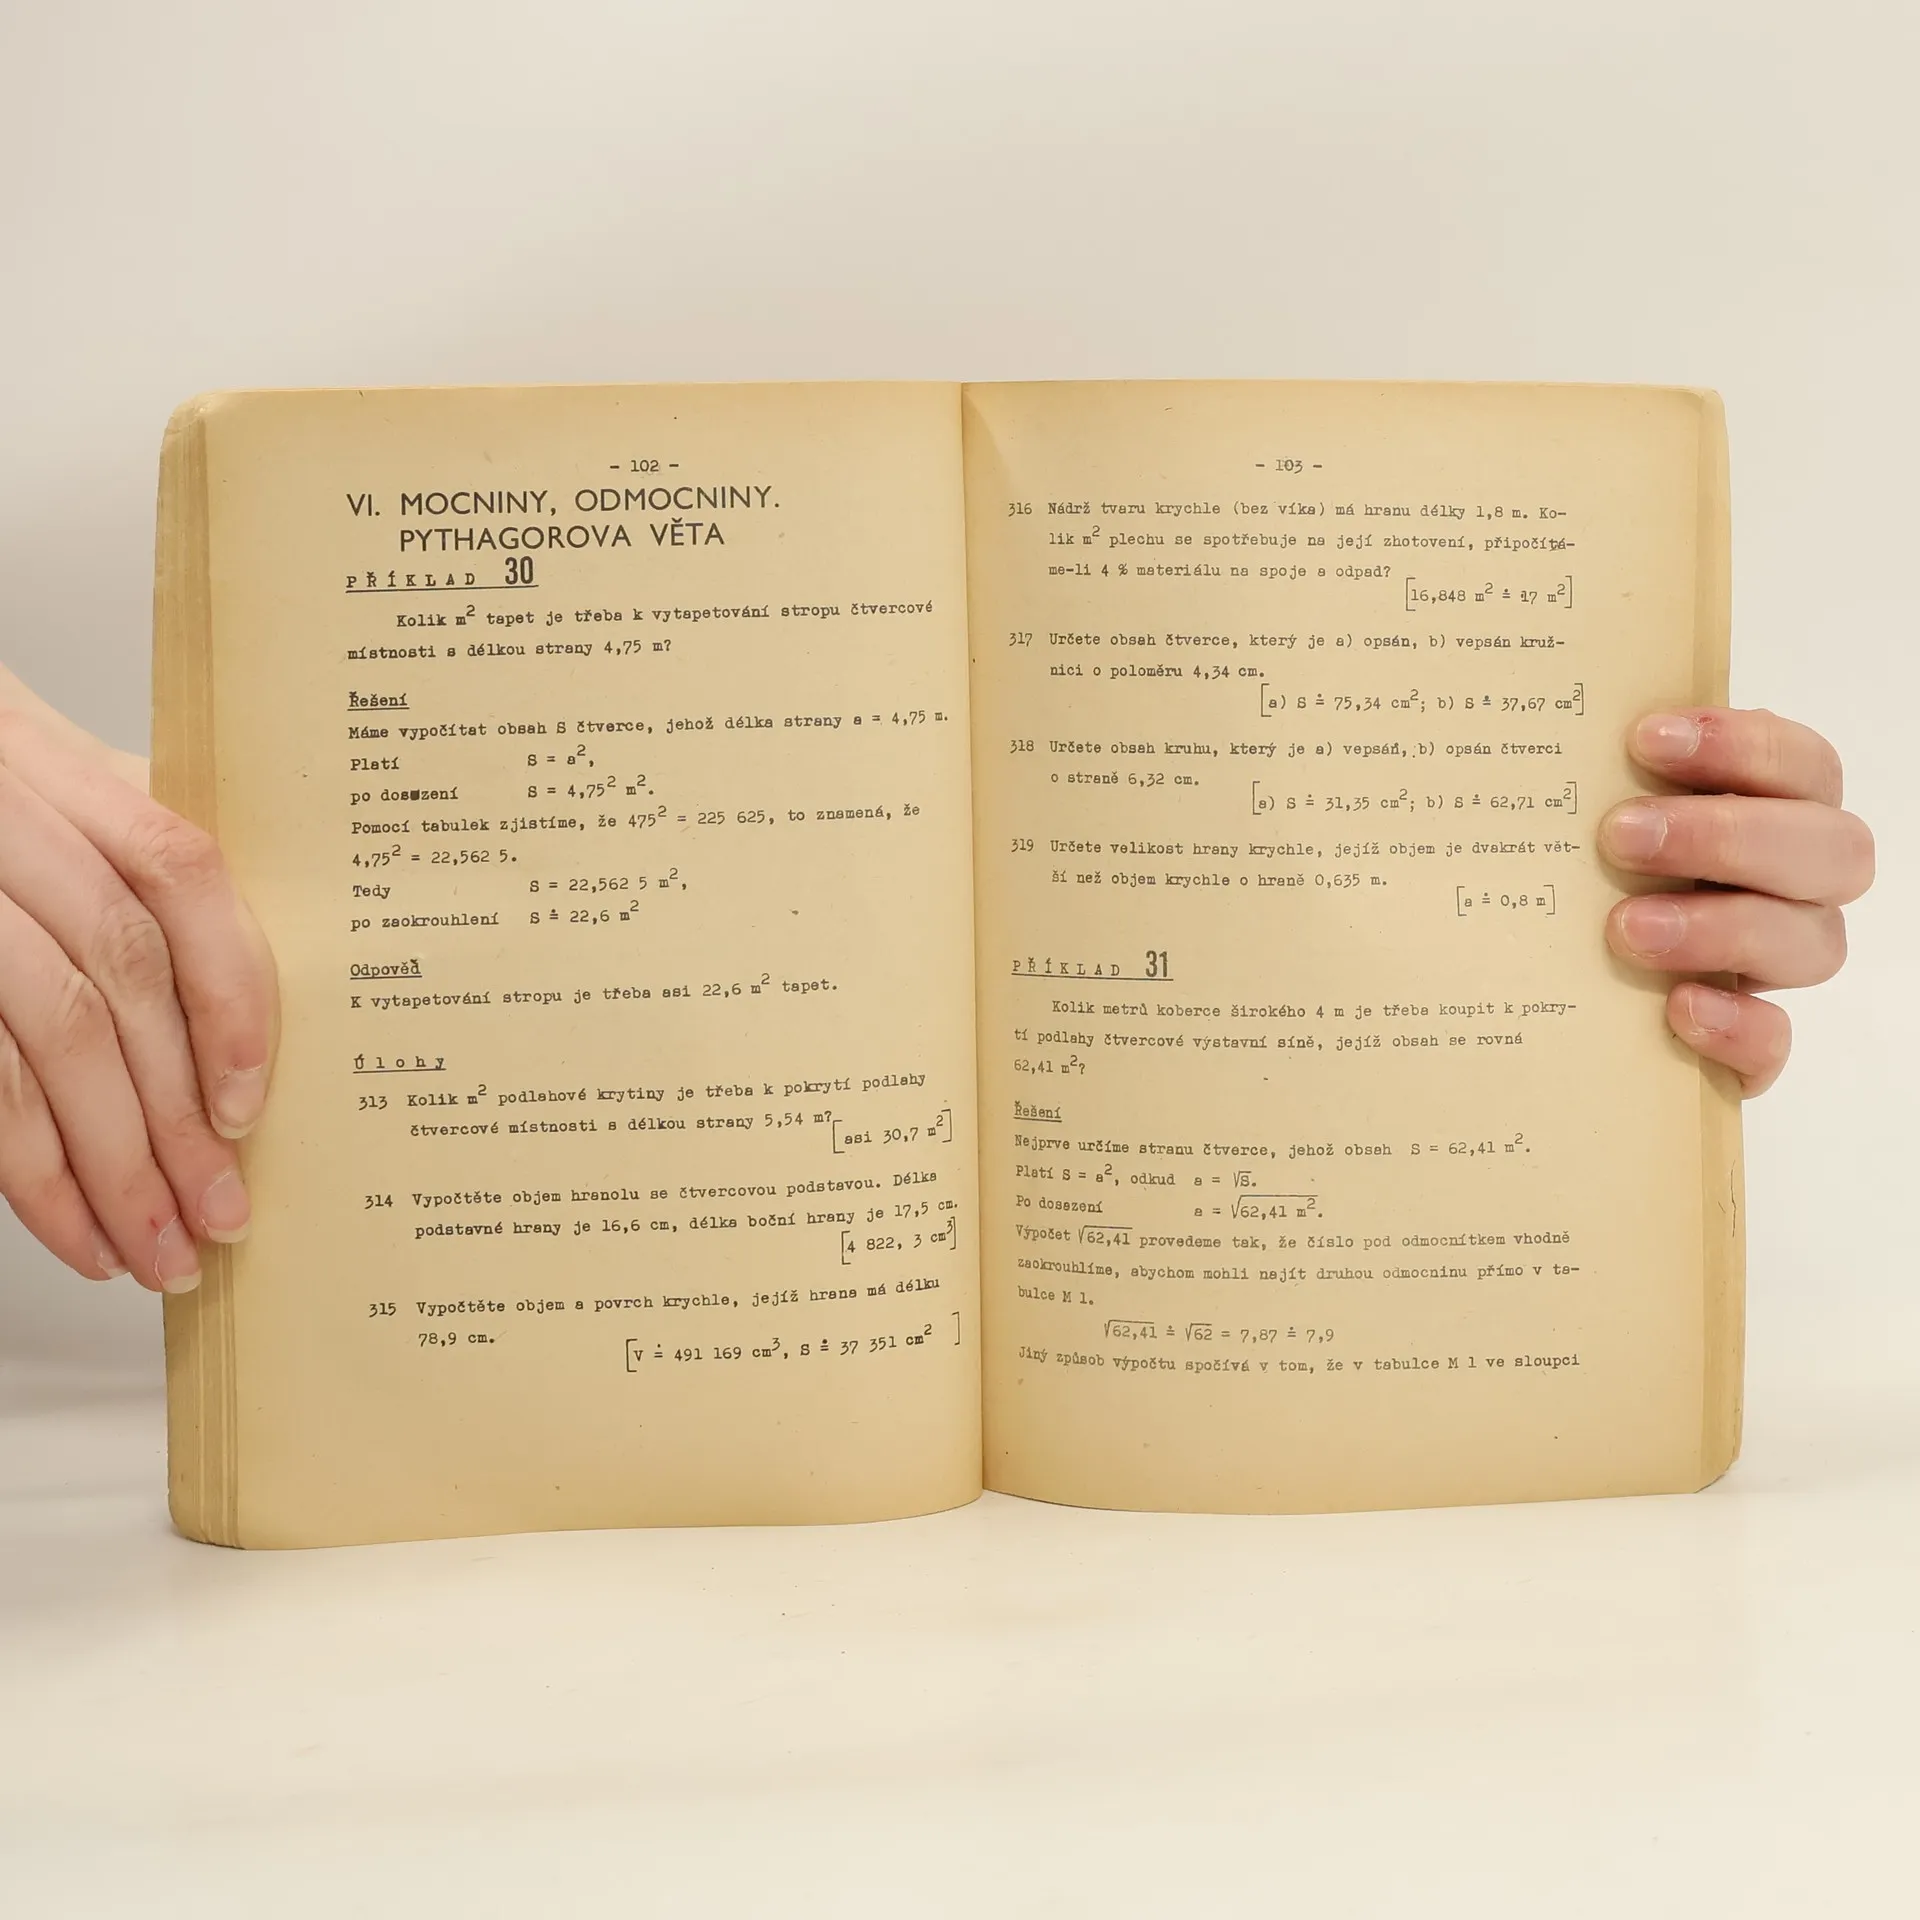 - 102 -
VI. MOCNINY, ODMOCNINY.
PYTHAGOROVA VĚTA
PŘÍKLAD 30
Kolik m² tapet je třeba k vytapetování stropu čtvercové
místnosti s délkou strany 4,75 m?
Řešení
Máme vypočítat obsah S čtverce, jehož délka strany a = 4,75 m.
Platí S = a²,
po dosazení S = 4,75² m².
Pomocí tabulek zjistíme, že 475² = 225 625, to znamená, že
4,75² = 22,562 5.
Tedy S = 22,562 5 m²,
po zaokrouhlení S ≐ 22,6 m²
Odpověď
K vytapetování stropu je třeba asi 22,6 m² tapet.
Úlohy
313 Kolik m² podlahové krytiny je třeba k pokrytí podlahy
čtvercové místnosti s délkou strany 5,54 m?
[asi 30,7 m²]
314 Vypočtěte objem hranolu se čtvercovou podstavou. Délka
podstavné hrany je 16,6 cm, délka boční hrany je 17,5 cm.
[4 822, 3 cm³]
315 Vypočtěte objem a povrch krychle, jejíž hrana má délku
78,9 cm.
[V ≐ 491 169 cm³, S ≐ 37 351 cm²]
- 103 -
316 Nádrž tvaru krychle (bez víka) má hranu délky 1,8 m. Ko-
lik m² plechu se spotřebuje na její zhotovení, připočítá-
me-li 4 % materiálu na spoje a odpad?
[16,848 m² ≐ 17 m²]
317 Určete obsah čtverce, který je a) opsán, b) vepsán kruž-
nici o poloměru 4,34 cm.
[a) S ≐ 75,34 cm²; b) S ≐ 37,67 cm²]
318 Určete obsah kruhu, který je a) vepsán, b) opsán čtverci
o straně 6,32 cm.
[a) S ≐ 31,35 cm²; b) S ≐ 62,71 cm²]
319 Určete velikost hrany krychle, jejíž objem je dvakrát vět-
ší než objem krychle o hraně 0,635 m.
[a ≐ 0,8 m]
PŘÍKLAD 31
Kolik metrů koberce širokého 4 m je třeba koupit k pokry-
tí podlahy čtvercové výstavní síně, jejíž obsah se rovná
62,41 m²?
Řešení
Nejprve určíme stranu čtverce, jehož obsah S = 62,41 m².
Platí S = a², odkud a = √S.
Po dosazení a = √62,41 m².
Výpočet √62,41 provedeme tak, že číslo pod odmocnítkem vhodně
zaokrouhlíme, abychom mohli najít druhou odmocninu přímo v ta-
bulce M 1.
√62,41 ≐ √62 = 7,87 ≐ 7,9
Jiný způsob výpočtu spočívá v tom, že v tabulce M 1 ve sloupci